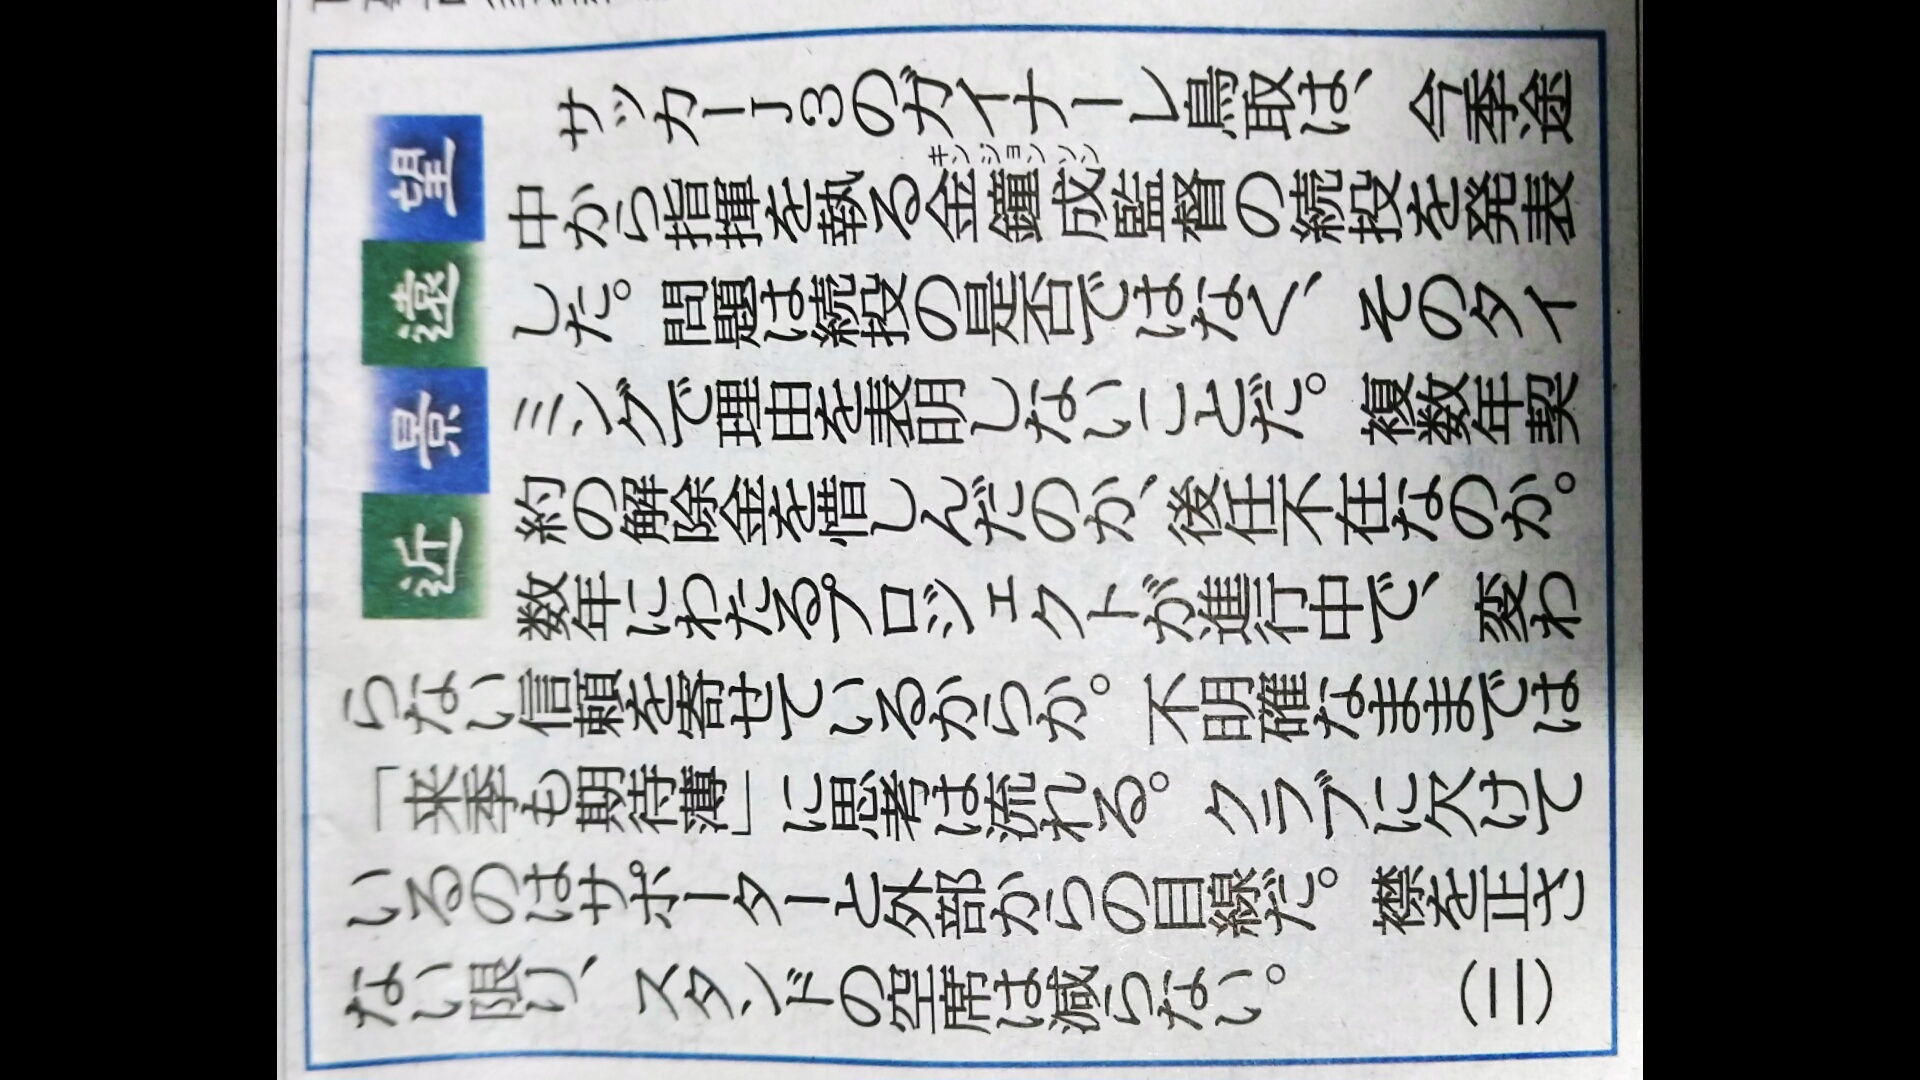 近景遠望
サッカーJ3のガイナーレ鳥取は、今季途
中から指揮を執る金鐘成監督の続投を発表
キンジョンソン
した。問題は続投の是否ではなく、そのタイ
ミングで理由を表明しないことだ。複数年契
約の解除金を惜しんだのか、後任不在なのか。
数年にわたるプロジェクトが進行中で、変わ
らない信頼を寄せているからか。不明確なままでは
「来季も期待薄」に思考は流れる。クラブに欠けて
いるのはサポーターと外部からの目線だ。襟を正さ
ない限り、スタンドの空席は減らない。（二）